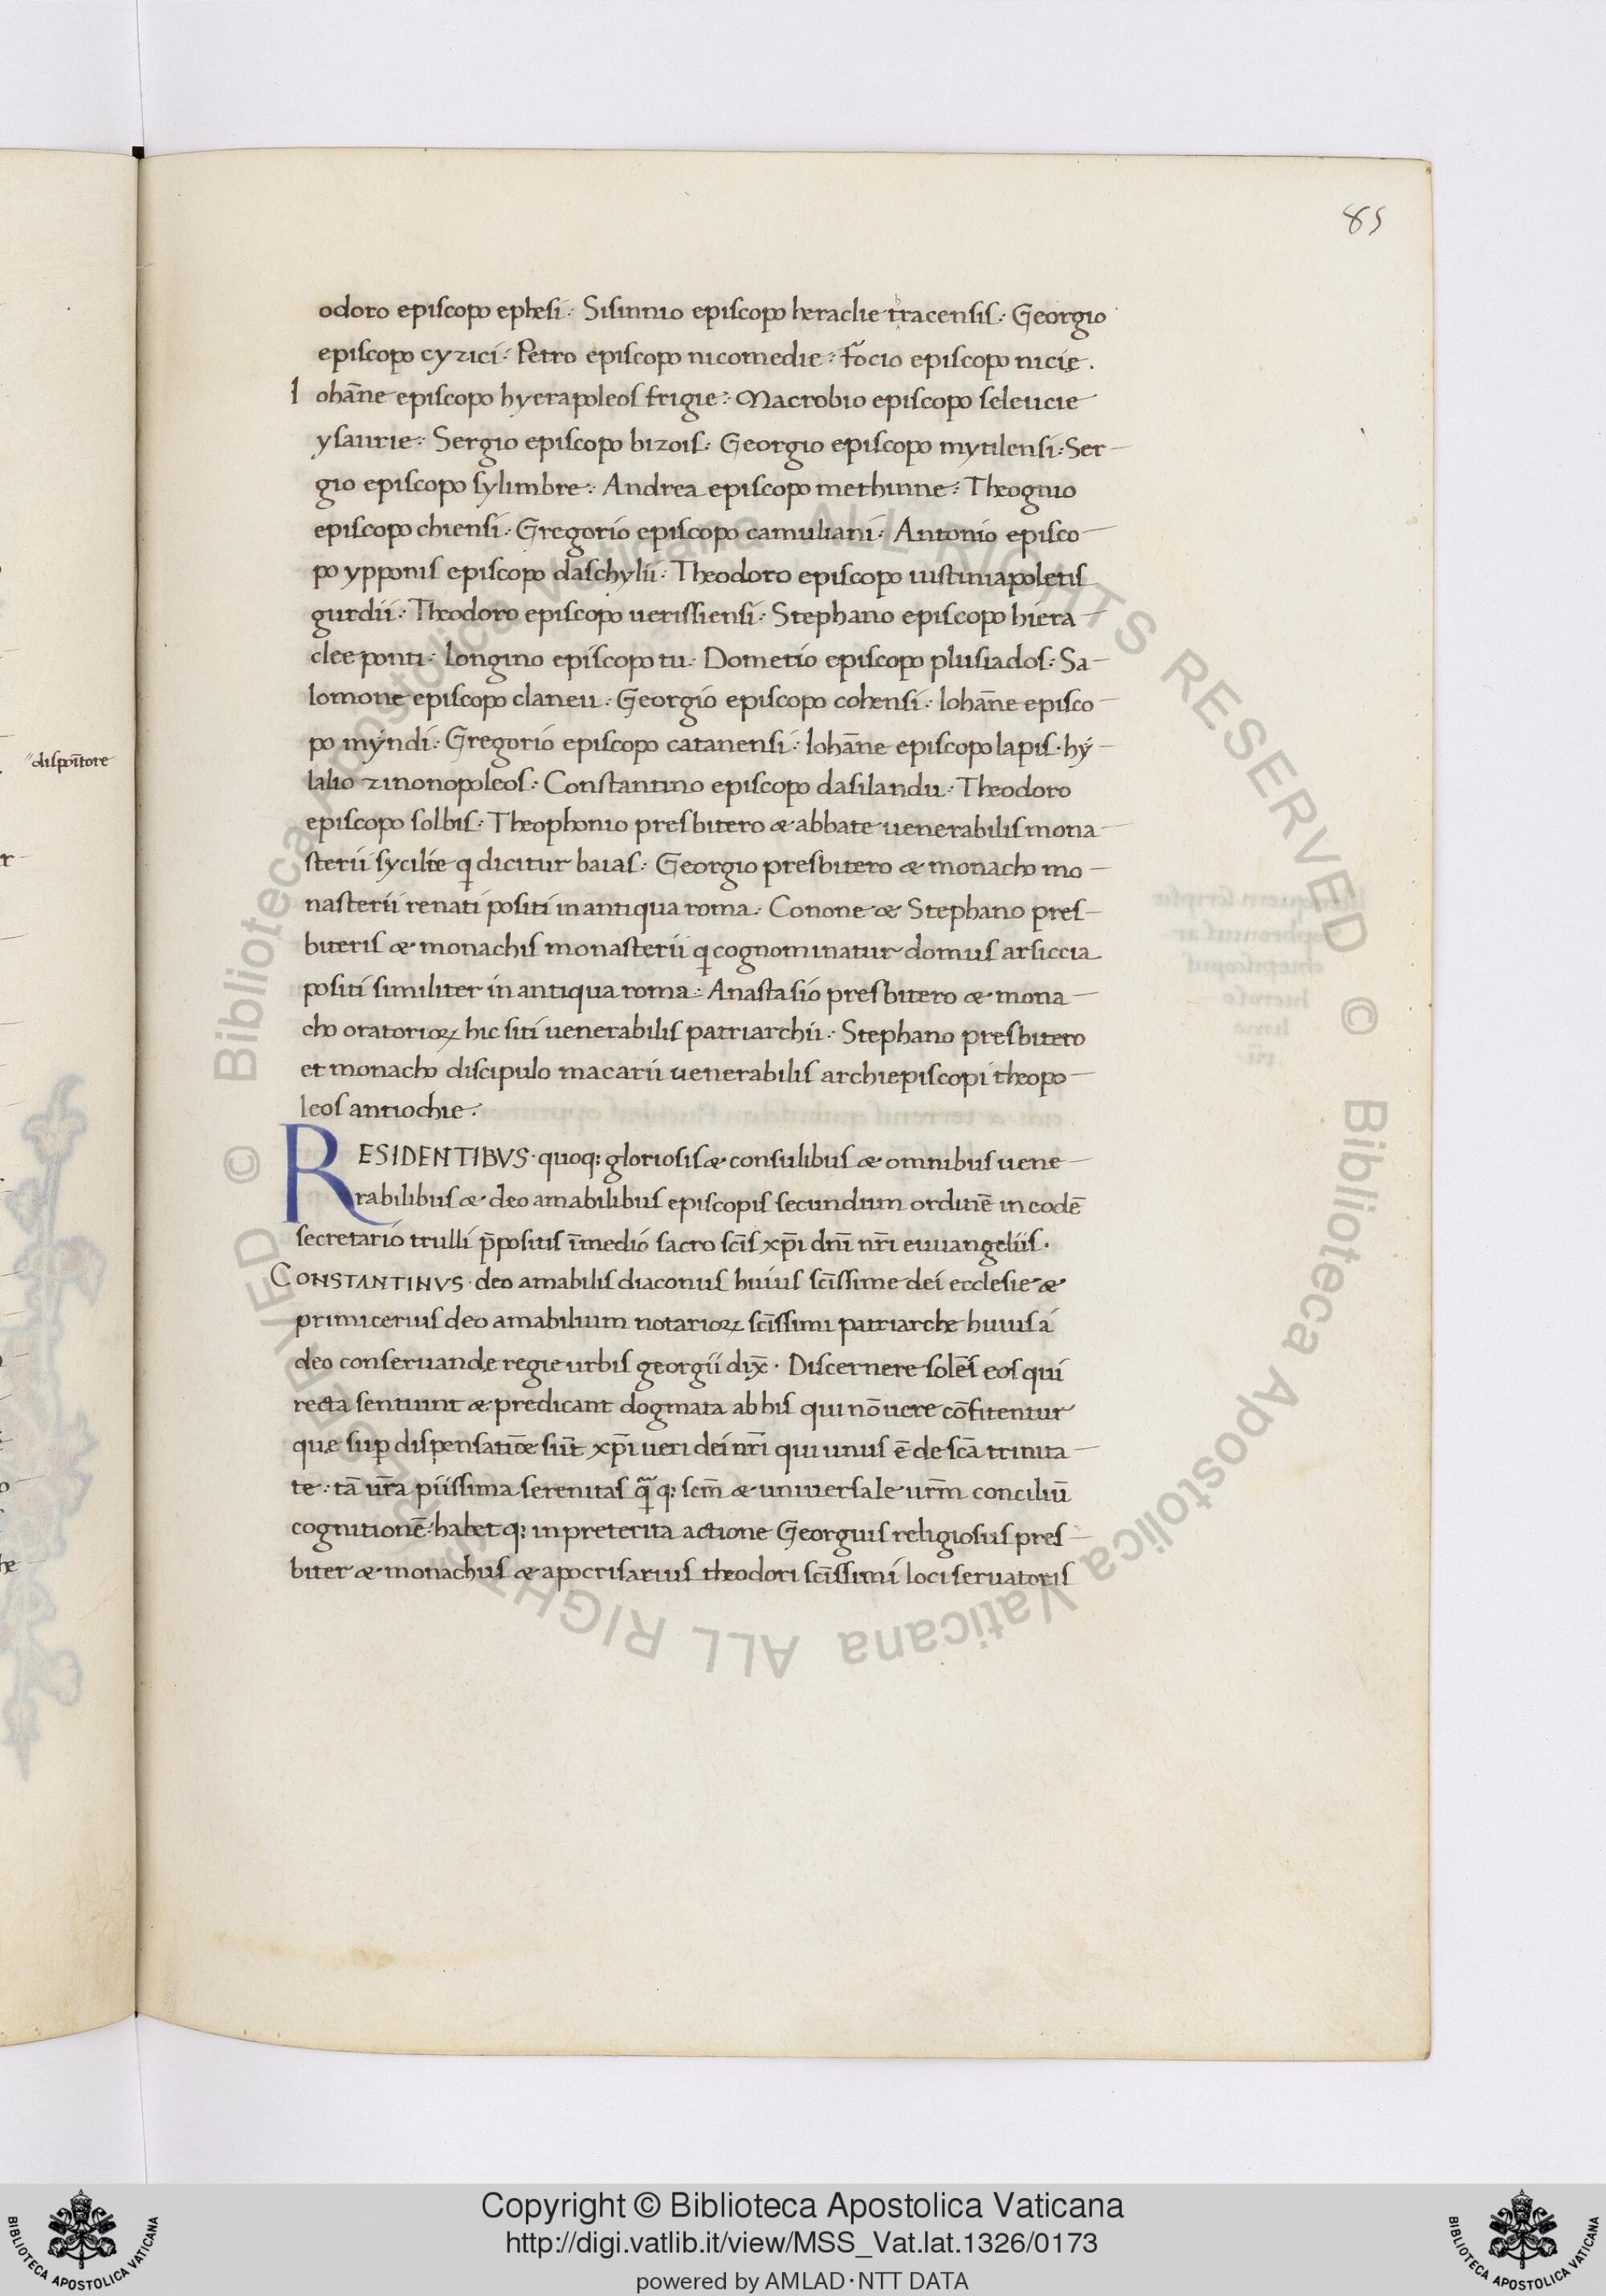 85
odoro episcopo ephesi: Sisinnio episcopo heraclie tracensis: Georgio
episcopo cyzici: Petro episcopo nicomedie: focio episcopo nicię.
Iohāne episcopo hyerapoleos frigie: Macrobio episcopo seleucie
ysaurie: Sergio episcopo bizois: Georgio episcopo mytilensi: Ser-
gio episcopo sylimbre: Andrea episcopo methinne: Theognio
episcopo chiensi: Gregorio episcopo camuliani: Antonio episco-
po ypponis episcopo daschylii: Theodoro episcopo iustiniapoletis
gurdii: Theodoro episcopo uerissiensi: Stephano episcopo hiera-
clee ponti: Longino episcopo tu: Dometio episcopo plusiados: Sa-
lomone episcopo claneu: Georgio episcopo cohensi: Iohāne episco-
po myndi: Gregorio episcopo catanensi: Iohāne episcopo lapis. hy-
lalio zinonopoleos: Constantino episcopo dasilandu: Theodoro
episcopo solbis: Theophonio presbitero & abbate uenerabilis mona-
sterii sycilie q dicitur baias: Georgio presbitero & monacho mo-
nasterii renati positi in antiqua roma: Conone & Stephano pres-
biteris & monachis monasterii q cognominatur domus arsiccia
positi similiter in antiqua roma: Anastasio presbitero & mona-
cho oratorioꝝ hic siti uenerabilis patriarchii: Stephano presbitero
et monacho discipulo macarii uenerabilis archiepiscopi theopo-
leos antiochie.
RESIDENTIBVS. quoq; gloriosis & consulibus & omnibus uene-
rabilibus & deo amabilibus episcopis secundum ordinē in eodē
secretario trulli p̄positis ī medio sacro scīs xp̄i dn̄i nr̄i euuangeliis.
CONSTANTINVS. deo amabilis diaconus huius scīssime dei ecclesie &
primicerius deo amabilium notarioꝝ scīssimi patriarche huius á
deo conseruandę regie urbis georgii dix̄. Discernere solēs eos qui
recta sentiunt & predicant dogmata ab his qui nō uere cōfitentur
quę sup dispensatiōe sūt xp̄i ueri dei nr̄i qui unus ē de scā trinita-
te: tā ur̄a piissima serenitas q̄ q; scm̄ & uniuersale ur̄m conciliū
cognitionē: habet q; in preterita actione Georgius religiosus pres-
biter & monachus & apocrisarius theodori scīssimi loci seruatoris
dispoītore
© Biblioteca Apostolica Vaticana ALL RIGHTS RESERVED
© Biblioteca Apostolica Vaticana ALL RIGHTS RESERVED
Copyright © Biblioteca Apostolica Vaticana
http://digi.vatlib.it/view/MSS_Vat.lat.1326/0173
powered by AMLAD·NTT DATA
BIBLIOTECA APOSTOLICA VATICANA
BIBLIOTECA APOSTOLICA VATICANA